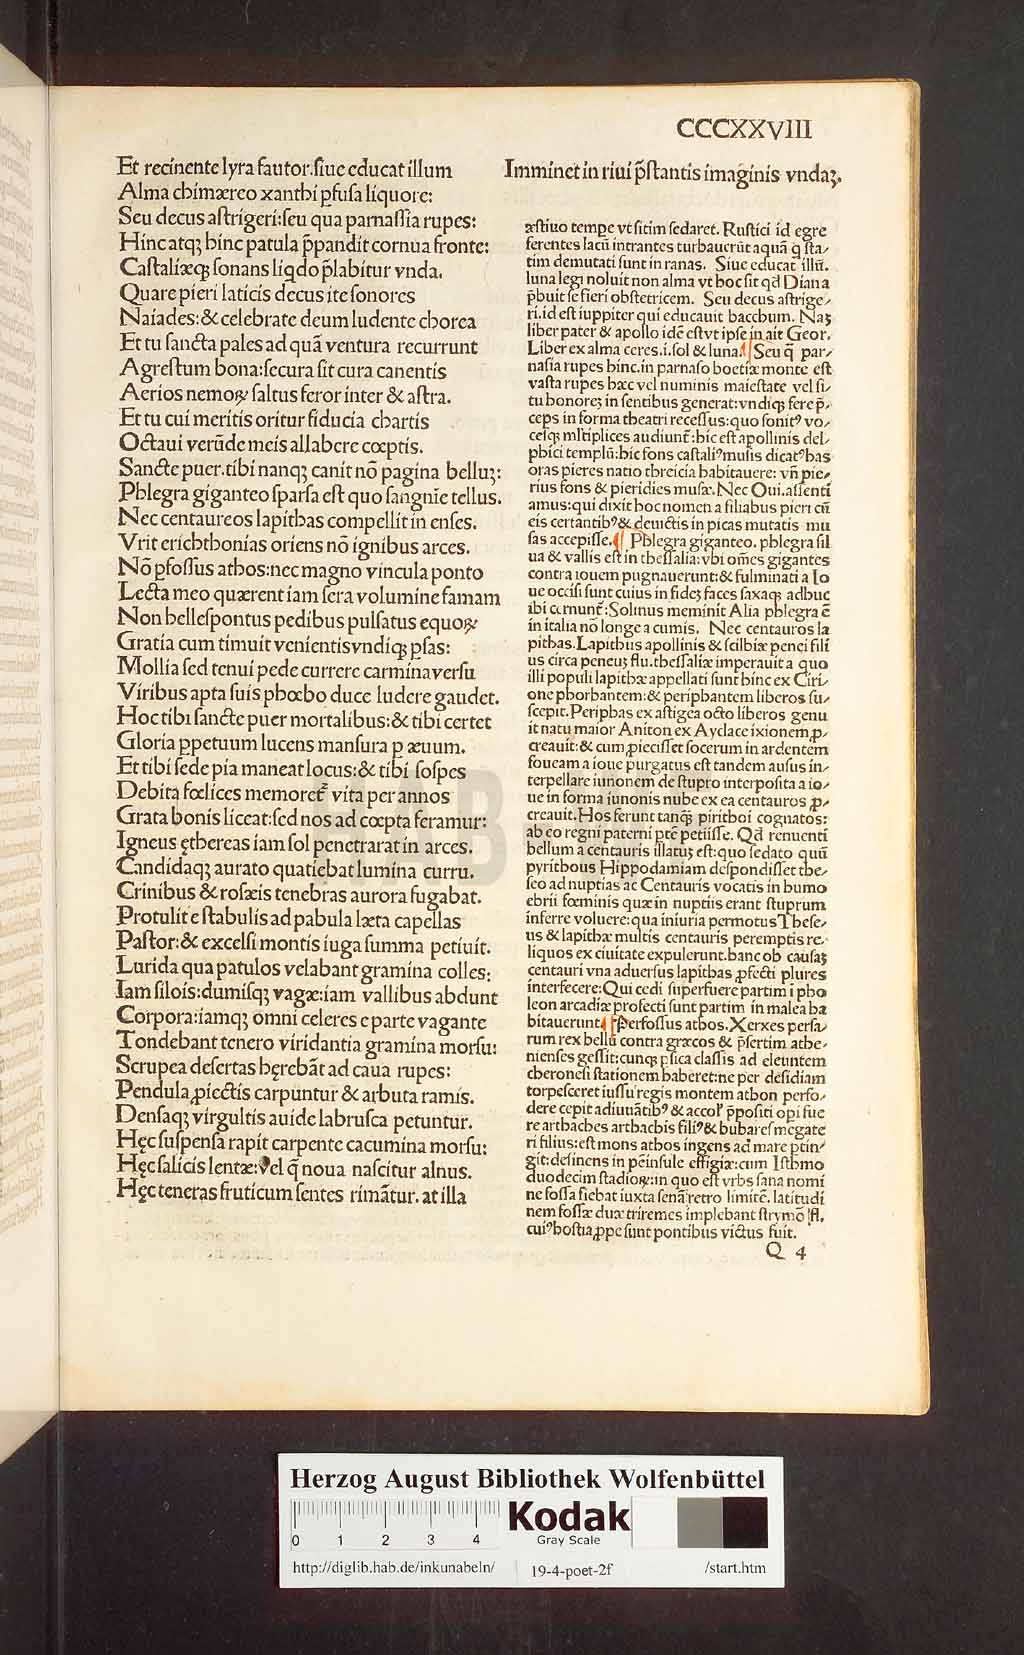 CCCXXVIII
Et recinente lyra fautor.siue educat illum
Alma chimæreo xanthi ꝑfusa liquore:
Seu decus astrigeri:seu qua parnassia rupes:
Hinc atqꝫ hinc patula p̄pandit cornua fronte:
Castaliæqꝫ sonans liqdo p̄labitur vnda.
Quare pieri laticis decus ite sonores
Naiades:& celebrate deum ludente chorea
Et tu sancta pales ad quā ventura recurrunt
Agrestum bona:secura sit cura canentis
Aerios nemoꝝ saltus feror inter & astra.
Et tu cui meritis oritur fiducia chartis
Octaui verūde meis allabere cœptis.
Sancte puer.tibi nanqꝫ canit nō pagina belluꝫ:
Phlegra giganteo sparsa est quo sangnīe tellus.
Nec centaureos lapithas compellit in enses.
Vrit erichthonias oriens nō ignibus arces.
Nō ꝑfossus athos:nec magno vincula ponto
Lecta meo quærent iam sera volumine famam
Non hellespontus pedibus pulsatus equoꝝ
Gratia cum timuit venientis vndiqꝫ ꝑsas:
Mollia sed tenui pede currere carmina versu
Viribus apta suis phœbo duce ludere gaudet.
Hoc tibi sancte puer mortalibus:& tibi certet
Gloria ꝑpetuum lucens mansura ꝑ æuum.
Et tibi sede pia maneat locus:& tibi sospes
Debita fœlices memoret᷑ vita per annos
Grata bonis liceat:sed nos ad cœpta feramur:
Igneus ętbereas iam sol penetrarat in arces.
Candidaqꝫ aurato quatiebat lumina curru.
Crinibus & rosæis tenebras aurora fugabat.
Protulit e stabulis ad pabula læta capellas
Pastor:& excelsi montis iuga summa petiuit.
Lurida qua patulos velabant gramina colles:
Iam silois:dumisqꝫ vagæ:iam vallibus abdunt
Corpora:iamqꝫ omni celeres e parte vagante
Tondebant tenero viridantia gramina morsu:
Scrupea desertas hęrebāt ad caua rupes:
Pendula ꝓiectis carpuntur & arbuta ramis.
Densaqꝫ virgultis auide labrusca petuntur.
Hęc suspensa rapit carpente cacumina morsu:
Hęc salicis lentæ:vel q̄ noua nascitur alnus.
Hęc teneras fruticum sentes rimātur. at illa
Imminet in riui p̄stantis imaginis vndaꝫ.
æstiuo tempe vt sitim sedaret. Rustici id egre
ferentes lacū intrantes turbauerūt aquā q̄ sta/
tim demutati sunt in ranas. Siue educat illū.
luna legi noluit non alma vt hoc sit qd̄ Diana
p̄buit se fieri obstetricem. Seu decus astrige/
ri.id est iuppiter qui educauit bacchum. Naꝫ
liber pater & apollo idē est vt ipse in ait Geor.
Liber ex alma ceres.i.sol & luna. ¶ Seu q̄ par/
nasia rupes hinc.in parnaso boetiæ monte est
vasta rupes hæc vel numinis maiestate vel si/
tu honoreꝫ in sentibus generat:vndiqꝫ fere p̄/
ceps in forma theatri recessus:quo sonitꝰ vo/
cesqꝫ ml̄tiplices audiunt᷑:hic est apollinis del/
phici templū:hic fons castaliꝰ musis dicatꝰ has
oras pieres natio threicia habitauere: vn̄ pie/
rius fons & pieridies musæ. Nec Oui.assenti
amus:qui dixit hoc nomen a filiabus pieri cū
eis certantibꝰ & deuictis in picas mutatis mu
sas accepisse. ¶ Phlegra giganteo. phlegra sil
ua & vallis est in thessalia: vbi om̄es gigantes
contra iouem pugnauerunt:& fulminati a Io
ue occisi sunt cuius in fideꝫ faces saxaqꝫ adhuc
ibi cernunt᷑:Solinus meminit Alia phlegra ē
in italia nō longe a cumis. Nec centauros la
pithas.Lapithus apollinis & scilbiæ penei fili
us circa peneuꝫ flu.thessaliæ imperauit a quo
illi populi lapithæ appellati sunt hinc ex Ciri/
one phorbantem:& periphantem liberos su/
scepit.Periphas ex astigea octo liberos genu
it natu maior Aniton ex Ayclace ixionem ꝓ/
creauit:& cum ꝓiecisset socerum in ardentem
foueam a ioue purgatus est tandem ausus in/
terpellare iunonem de stupro interposita a io/
ue in forma iunonis nube ex ea centauros ꝓ/
creauit.Hos ferunt tanqꝫ̄ piritboi cognatos:
ab eo regni paterni ptē petiisse. Qd̄ renuenti
bellum a centauris illatuꝫ est:quo sedato quū
pyrithous Hippodamiam despondisset the/
seo ad nuptias ac Centauris vocatis in humo
ebrii fœminis quæ in nuptiis erant stuprum
inferre voluere:qua iniuria permotus These/
us & lapithæ multis centauris peremptis re/
liquos ex ciuitate expulerunt.hanc ob causaꝫ
centauri vna aduersus lapithas ꝓfecti plures
interfecere:Qui cedi superfuere partim ī pho
leon arcadiæ profecti sunt partim in malea ha
bitauerunt. ¶ Perfossus athos.Xerxes persa/
rum rex bellū contra græcos & p̄sertim athe/
nienses gessit:cunqꝫ ꝑsica classis ad eleuntem
cheronesi stationem haberet:ne per desidiam
torpesceret iussu regis montem athon perfo/
dere cepit adiuuātibꝰ & accol᷑ p̄positi opi fue
re artbaches artbachis filiꝰ & bubares megate
ri filius:est mons athos ingens ad mare ꝑtin/
git:desinens in pēinsule effigiæ:cum Istbmo
duodecim stadioꝝ:in quo est vrbs sana nomi
ne fossa fiebat iuxta senā retro limitē. latitudi
nem fossæ duæ triremes implebant strymō fl.
cuiꝰ hostia ꝓpe sunt pontibus victus fuit.
Q 4
HAB WF
Herzog August Bibliothek Wolfenbüttel
0 1 2 3 4
Kodak
Gray Scale
http://diglib.hab.de/inkunabeln/ 19-4-poet-2f /start.htm